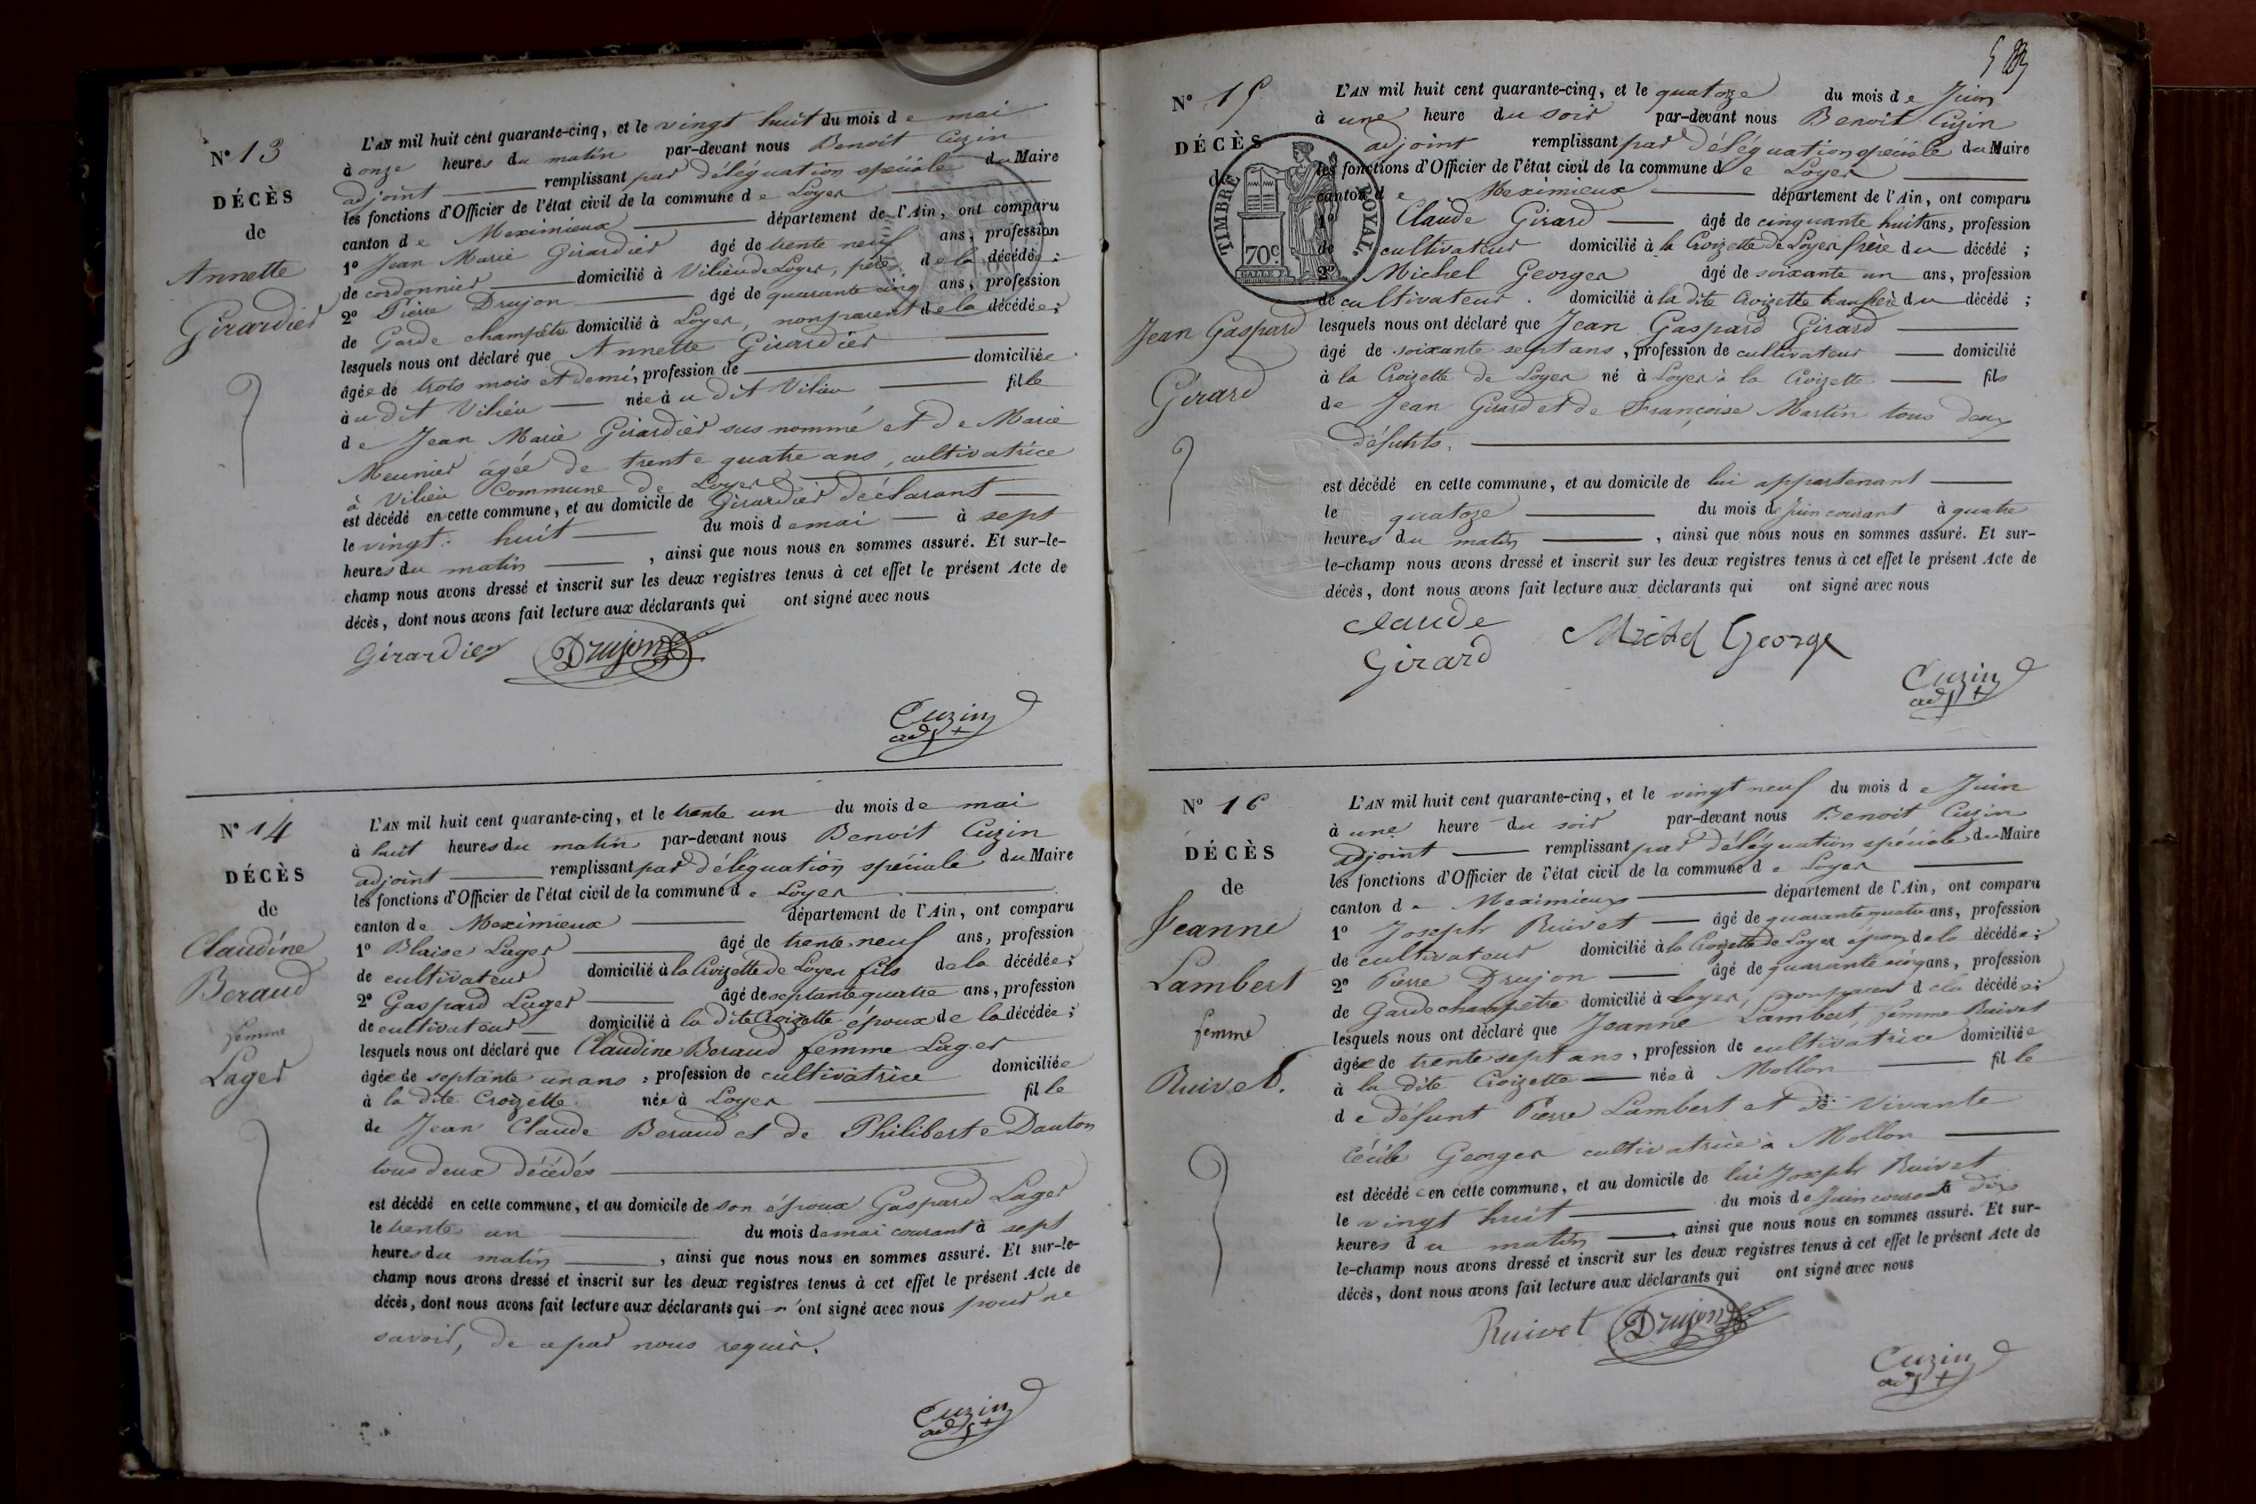 N° 13
DÉCÈS
de
Annette
Girardier
L'AN mil huit cent quarante-cinq, et le vingt huit du mois de mai
à onze heures du matin par-devant nous Benoit Cuzin
adjoint remplissant par délégation spéciale du Maire
les fonctions d'Officier de l'état civil de la commune de Loyes
canton de Meximieux département de l'Ain, ont comparu
1° Jean Marie Girardier âgé de trente neuf ans, profession
de cordonnier domicilié à Vilieu de Loyes, père de la décédée ;
2° Pierre Drujon âgé de quarante cinq ans, profession
de Garde champêtre domicilié à Loyes, non parent de la décédée ;
lesquels nous ont déclaré que Annette Girardier
âgée de trois mois et demi, profession de domiciliée
à u dit Vilieu née à u dit Vilieu fille
de Jean Marie Girardier sus nommé et de Marie
Meunier agée de trente quatre ans, cultivatrice
à Vilieu Commune de Loyes
est décédé en cette commune, et au domicile de Girardier déclarant
le vingt huit du mois de mai à sept
heures du matin , ainsi que nous nous en sommes assuré. Et sur-le-
champ nous avons dressé et inscrit sur les deux registres tenus à cet effet le présent Acte de
décès, dont nous avons fait lecture aux déclarants qui ont signé avec nous
Girardier Drujon
Cuzin
adjt
N° 14
DÉCÈS
de
Claudine
Beraud
femme
Lager
L'AN mil huit cent quarante-cinq, et le trente un du mois de mai
à huit heures du matin par-devant nous Benoit Cuzin
adjoint remplissant par délégation spéciale du Maire
les fonctions d'Officier de l'état civil de la commune de Loyes
canton de Meximieux département de l'Ain, ont comparu
1° Blaise Lager âgé de trente neuf ans, profession
de cultivateur domicilié à la Croizette de Loyes fils de la décédée ;
2° Gaspard Lager âgé de septante quatre ans, profession
de cultivateur domicilié à la dite Croizette époux de la décédée ;
lesquels nous ont déclaré que Claudine Beraud femme Lager
âgée de septante un ans, profession de cultivatrice domiciliée
à la dite Croizette née à Loyes fille
de Jean Claude Beraud et de Philiberte Dauton
tous deux décédés
est décédé en cette commune, et au domicile de son époux Gaspard Lager
le trente un du mois de mai courant à sept
heures du matin , ainsi que nous nous en sommes assuré. Et sur-le-
champ nous avons dressé et inscrit sur les deux registres tenus à cet effet le présent Acte de
décès, dont nous avons fait lecture aux déclarants qui n'ont signé avec nous pour ne
savoir, de ce par nous requis.
Cuzin
adjt
N° 15
DÉCÈS
de
TIMBRE ROYAL
70c
Jean Gaspard
Girard
L'AN mil huit cent quarante-cinq, et le quatoze du mois de Juin
à une heure du soir par-devant nous Benoit Cuzin
adjoint remplissant par délégation spéciale du Maire
les fonctions d'Officier de l'état civil de la commune de Loyes
canton de Meximieux département de l'Ain, ont comparu
1° Claude Girard âgé de cinquante huit ans, profession
de cultivateur domicilié à la Croizette de Loyes frère du décédé ;
2° Michel Georges âgé de soixante un ans, profession
de cultivateur domicilié à la dite Croizette beau frère du décédé ;
lesquels nous ont déclaré que Jean Gaspard Girard
âgé de soixante sept ans, profession de cultivateur domicilié
à la Croizette de Loyes né à Loyes à la Croizette fils
de Jean Girard et de Françoise Martin tous deux
défunts.
est décédé en cette commune, et au domicile de lui appartenant
le quatoze du mois de juin courant à quatre
heures du matin , ainsi que nous nous en sommes assuré. Et sur-
le-champ nous avons dressé et inscrit sur les deux registres tenus à cet effet le présent Acte de
décès, dont nous avons fait lecture aux déclarants qui ont signé avec nous
Claude Girard Michel George
Cuzin
adjt
N° 16
DÉCÈS
de
Jeanne
Lambert
femme
Ruivet.
L'AN mil huit cent quarante-cinq, et le vingt neuf du mois de Juin
à une heure du soir par-devant nous Benoit Cuzin
adjoint remplissant par délégation spéciale du Maire
les fonctions d'Officier de l'état civil de la commune de Loyes
canton de Meximieux département de l'Ain, ont comparu
1° Joseph Ruivet âgé de quarante quatre ans, profession
de cultivateur domicilié à la Croizette de Loyes époux de la décédée ;
2° Pierre Drujon âgé de quarante cinq ans, profession
de Garde champêtre domicilié à Loyes, non parent de la décédée ;
lesquels nous ont déclaré que Jeanne Lambert femme Ruivet
âgée de trente sept ans, profession de cultivatrice domiciliée
à la dite Croizette née à Mollon fille
de défunt Pierre Lambert et de vivante
Cécile Georges cultivatrice à Mollon
est décédée en cette commune, et au domicile de lui Joseph Ruivet
le vingt huit du mois de Juin courant à dix
heures du matin , ainsi que nous nous en sommes assuré. Et sur-
le-champ nous avons dressé et inscrit sur les deux registres tenus à cet effet le présent Acte de
décès, dont nous avons fait lecture aux déclarants qui ont signé avec nous
Ruivet Drujon
Cuzin
adjt